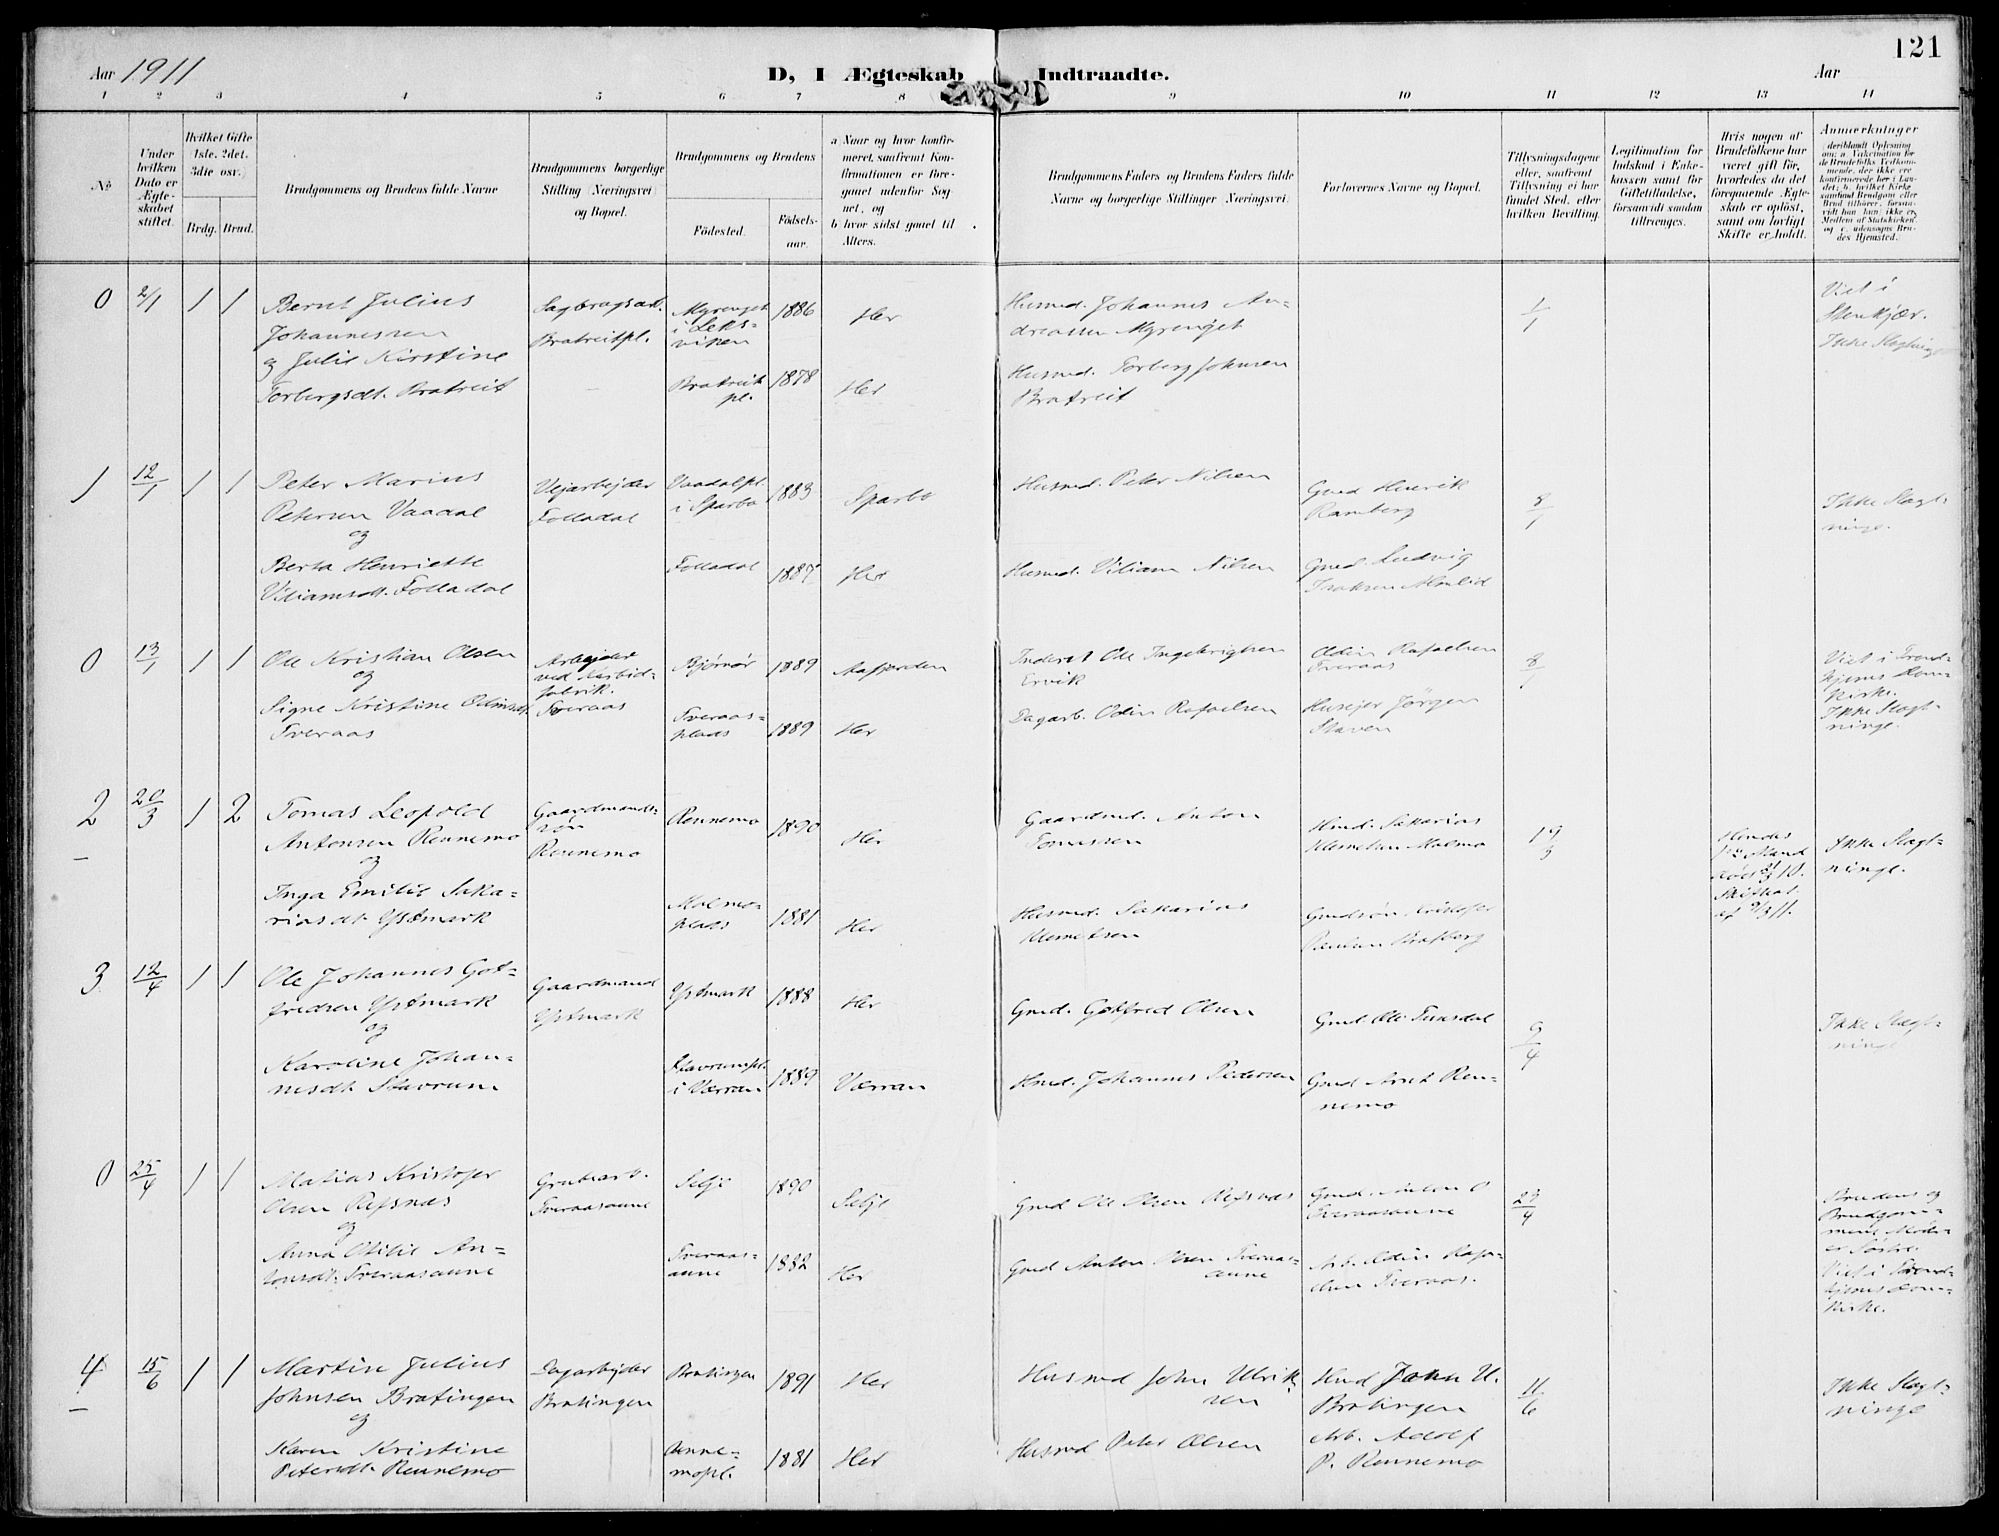 121
Aar 1911
D, I Ægteskab Indtraadte.
Aar
1 2 3 4 5 6 7 8 9 10 11 12 13 14
No
Under hvilken Dato er Ægteskabet stiftet.
Hvilket Gifte 1ste. 2det. 3die osv.)
Brdg. Brud.
Brudgommens og Brudens fulde Navne
Brudgommens borgerlige Stilling (Næringsvei) og Bopæl.
Brudgommens og Brudens
Födested.
Födselsaar.
a Naar og hvor konfirmeret, saafremt Konfirmationen er foregaaet udenfor Sognet, og
b hvor sidst gaaet til Alters.
Brudgommens Faders og Brudens Faders fulde Navne og borgerlige Stillinger (Næringsvei)
Forlovernes Navne og Bopæl.
Tillysningsdagene eller, saafremt Tillysning ei har fundet Sted, efter hvilken Bevilling.
Legitimation for Indskud i Enkekassen samt for Giftetilladelse, forsaavidt saadan tiltrænges.
Hvis nogen af Brudefolkene har været gift för, hvorledes da det foregaaende Ægteskab er oplöst, samt om lovligt Skifte er holdt.
Anmærkninger
0 2/1 1 1
Bernt Julius
Johannessen
og Julie Kirstine
Torbergsdt. Bratreit
Sagbrugsarb.
Bratreitpl.
Myrenget
i Leks-
viken
1886
Her
Husmd. Johannes An-
dreassen Myrenget
1/1
Viet i
Stenkjær.
Ikke Slagtninge
Bratreit
pl.
1878
Her
Husmd. Torberg Johnsen
Bratreit
1 12/1 1 1
Peter Marius
Petersen Vaadal
og
Berta Henriette
Viliamsdt. Folladal
Vejarbejder
Folladal
Vaadalpl.
i Sparbo
1883
Sparbo
Husmd. Peter Nilsen
Gmd Henrik
Ramberg
8/1
Ikke Slagt-
ninge.
Folladal
1887
Her
Husmd. Viliam Nilsen
Gmd. Ludvig
Isaksen Almlid
0 13/1 1 1
Ole Kristian Olsen
og
Signe Kristine Odinsdt.
Tveraas
Arbejder
ved Karbid-
fabrik.
Tveraas
Bjørnør
1889
Aafjorden
Inderst Ole Ingebrigtsen
Ervik
Odin Rafaelsen
Tveraas
8/1
Viet i Trond-
hjems Dom-
kirke.
Ikke Slagt-
ninge.
Tveraas-
plads
1889
Her
Dagarb. Odin Rafaelsen
Husejer Jörgen
Staven
2 20/3 1 2
Tomas Leopold
Antonsen Rennemo
og
Inga Emilie Saka-
riasdt. Ystmark
Gaardmands-
søn
Rennemo
Rennemo
1890
Her
Gaardmd. Anton
Tomassen
Hmd. Sakarias
Klemetsen Malmo
19/3
Hendes
Mand
død
Skifteat.
af
Ikke Slagt-
ninge.
Malmo-
plads
1881
Her
Husmd. Sakarias
Klemetsen
Gmdsøn Kristofer
3 12/4 1 1
Ole Johannes Got-
fredsen Ystmark
og
Karoline Johan-
nesdt. Stavrum
Gaardmand
Ystmark
Ystmark
1888
Her
Gmd. Gotfred Olsen
Gmd. Ole Tunsdal
9/4
Ikke Slagt-
ninge
Stavrumpl.
i Værran
1889
Værran
Hmd. Johannes Pedersen
Gmd Arnt Ren-
nemo
0 25/4 1 1
Matias Kristofer
Olsen Refsnæs
og
Anna Otilie An-
tonsdt. Tveraasaune
Grubearb.
Tveraasaune
Selje
1890
Selje
Gmd Ole Olsen Refsnæs
Gmd. Anton O
Tveraasaune
23/4
Brudens og
Brudgom-
mens Mødre
er Søstre.
Viet i Trond-
hjems Dom-
kirke.
Tveraas-
aune
1882
Her
Gmd Anton Olsen Tveraas-
aune
Arb. Odin Rafa-
elsen Tveraas.
4 15/6 1 1
Martin Julius
Johnsen Bratingen
og
Karen Kristine
Petersdt. Rennemo
Dagarbejder
Bratingen
Bratingen
1891
Her
Husmd John Ulrik-
sen
Hmd John U.
Bratingen
11/6
Ikke Slagt-
ninge
Renne-
mopl.
1881
Her
Husmd Peter Olsen
Arb. Adolf
P. Rennemo